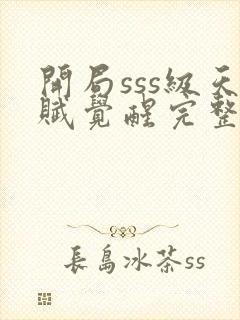 開局sss級天
賦覺醒完整
長島冰茶ss